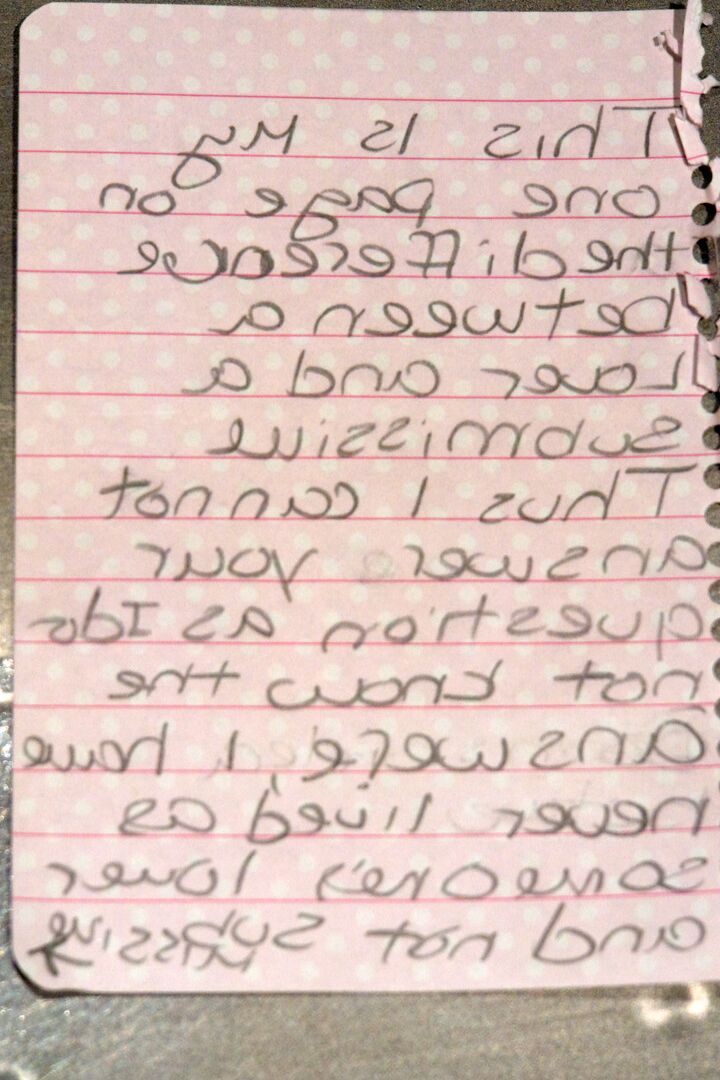 This is my
one page on
the difference
between a
Lover and a
Submissive
Thus I cannot
answer your
question as I do
not know the
Answere, I have
never lived as
someone's lover
and not submissive